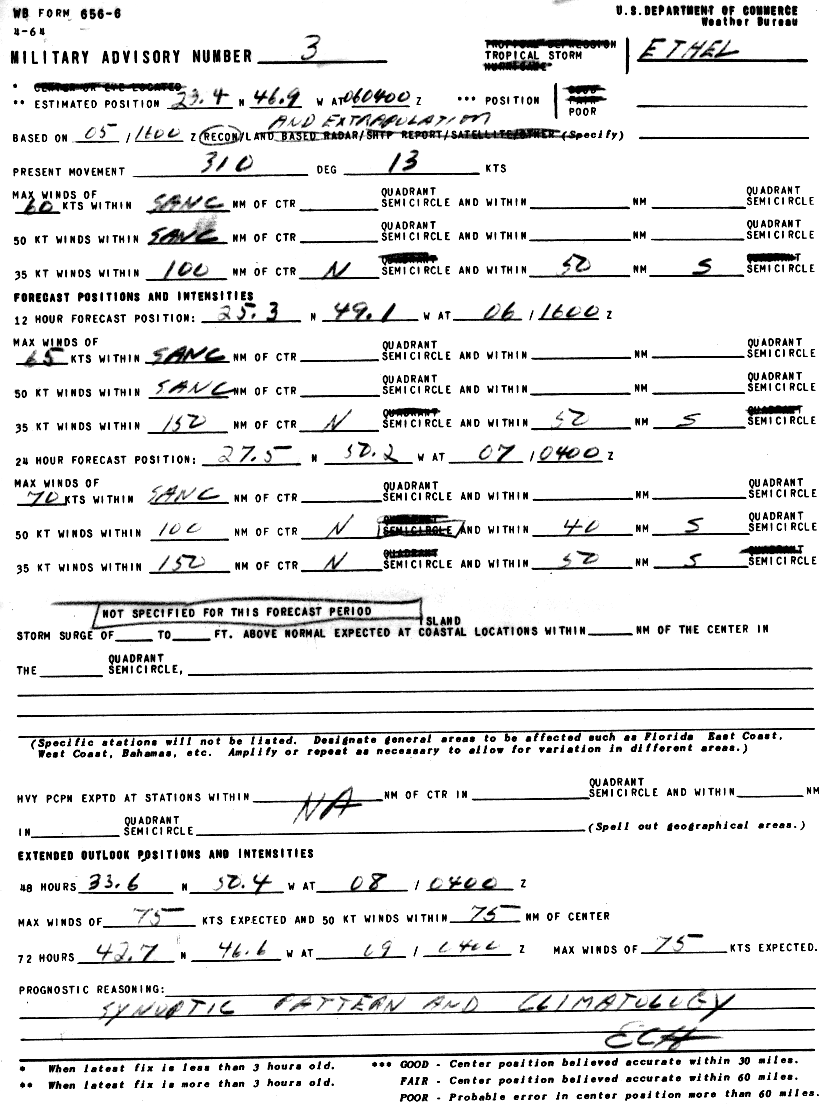 WB FORM 656-6
U.S. DEPARTMENT OF COMMERCE
4-64
Weather Bureau
MILITARY ADVISORY NUMBER 3
TROPICAL DEPRESSION
TROPICAL STORM ETHEL
HURRICANE
* CENTER OR EYE LOCATED
** ESTIMATED POSITION 23.4 N 46.9 W AT 060400 Z *** POSITION GOOD FAIR POOR
AND EXTRAPOLATION
BASED ON 05 / 1600 Z (RECON/LAND BASED RADAR/SHIP REPORT/SATELLITE/OTHER (Specify)
PRESENT MOVEMENT 310 DEG 13 KTS
MAX WINDS OF QUADRANT QUADRANT
60 KTS WITHIN SANC NM OF CTR SEMICIRCLE AND WITHIN NM SEMICIRCLE
50 KT WINDS WITHIN SANC NM OF CTR QUADRANT SEMICIRCLE AND WITHIN NM QUADRANT SEMICIRCLE
35 KT WINDS WITHIN 100 NM OF CTR N QUADRANT SEMICIRCLE AND WITHIN 50 NM S QUADRANT SEMICIRCLE
FORECAST POSITIONS AND INTENSITIES
12 HOUR FORECAST POSITION: 25.3 N 49.1 W AT 06 / 1600 Z
MAX WINDS OF QUADRANT QUADRANT
65 KTS WITHIN SANC NM OF CTR SEMICIRCLE AND WITHIN NM SEMICIRCLE
50 KT WINDS WITHIN SANC NM OF CTR QUADRANT SEMICIRCLE AND WITHIN NM QUADRANT SEMICIRCLE
35 KT WINDS WITHIN 150 NM OF CTR N QUADRANT SEMICIRCLE AND WITHIN 50 NM S QUADRANT SEMICIRCLE
24 HOUR FORECAST POSITION: 27.5 N 50.2 W AT 07 / 0400 Z
MAX WINDS OF QUADRANT QUADRANT
70 KTS WITHIN SANC NM OF CTR SEMICIRCLE AND WITHIN NM SEMICIRCLE
50 KT WINDS WITHIN 100 NM OF CTR N QUADRANT SEMICIRCLE AND WITHIN 40 NM S QUADRANT SEMICIRCLE
35 KT WINDS WITHIN 150 NM OF CTR N QUADRANT SEMICIRCLE AND WITHIN 50 NM S QUADRANT SEMICIRCLE
NOT SPECIFIED FOR THIS FORECAST PERIOD
ISLAND
STORM SURGE OF TO FT. ABOVE NORMAL EXPECTED AT COASTAL LOCATIONS WITHIN NM OF THE CENTER IN
THE QUADRANT SEMICIRCLE,
(Specific stations will not be listed. Designate general areas to be affected such as Florida East Coast,
West Coast, Bahamas, etc. Amplify or repeat as necessary to allow for variation in different areas.)
HVY PCPN EXPTD AT STATIONS WITHIN NA NM OF CTR IN QUADRANT SEMICIRCLE AND WITHIN NM
IN QUADRANT SEMICIRCLE (Spell out geographical areas.)
EXTENDED OUTLOOK POSITIONS AND INTENSITIES
48 HOURS 33.6 N 50.4 W AT 08 / 0400 Z
MAX WINDS OF 75 KTS EXPECTED AND 50 KT WINDS WITHIN 75 NM OF CENTER
72 HOURS 42.7 N 46.6 W AT 09 / 0400 Z MAX WINDS OF 75 KTS EXPECTED.
PROGNOSTIC REASONING:
SYNOPTIC PATTERN AND CLIMATOLOGY
ECH
* When latest fix is less than 3 hours old. *** GOOD - Center position believed accurate within 30 miles.
** When latest fix is more than 3 hours old. FAIR - Center position believed accurate within 60 miles.
POOR - Probable error in center position more than 60 miles.